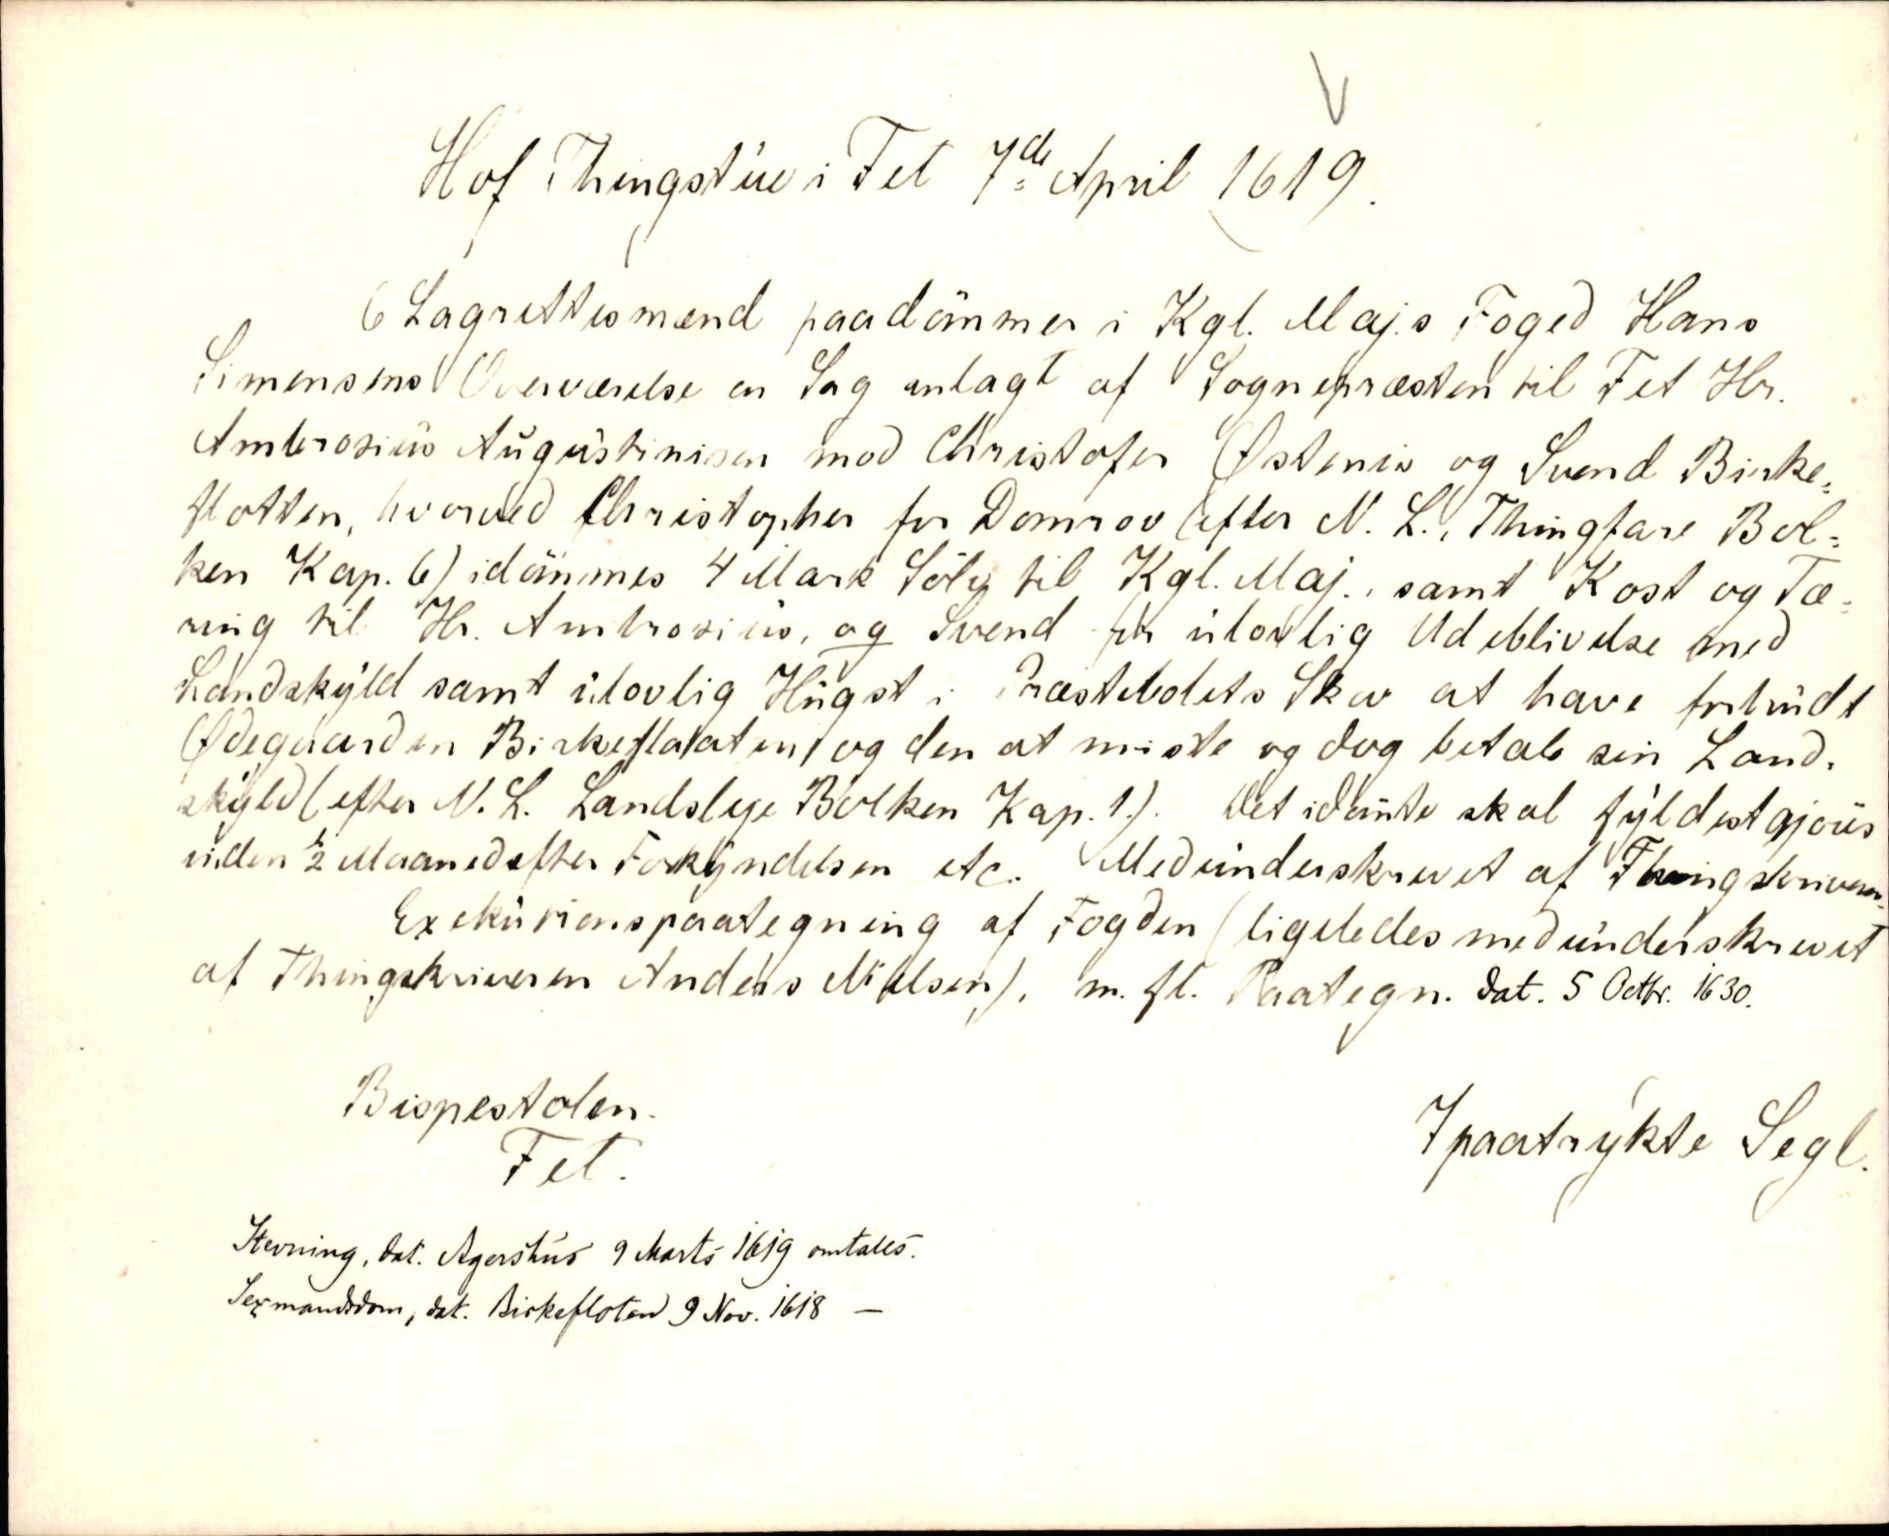 Hof Thingstue i Fet 7de April 1619.
6 Lagrettesmænd paadömmer i Kgl. Maj.s Foged Hans
Simensens Overværelse en Sag anlagt af Sognepræsten til Fet Hr.
Ambrosius Augustinisen mod Christofer Østenis og Svend Birke=
flotten, hvorved Christopher for Domrov (efter N. L., Thingfare Bol=
ken Kap. 6) idömmes 4 Mark Sölv til Kgl. Maj., samt Kost og Tæ=
ring til Hr. Ambrosius, og Svend for ulovlig Udeblivelse med
Landskyld samt ulovlig Hugst i Præstebolets Skov at have forbrudt
Ødegaarden Birkeflaaten, og den at miste og dog betale sin Land.
skyld (efter N. L. Landsleje Bolken Kap. 1.). Det idömte skal fyldestgjöres
inden ½ Maaned efter Forkyndelsen etc. Medunderskrevet af Thingskriveren.
Exekutionspaategning af Fogden (ligeledes medunderskrevet
af Thingskriveren Anders Nielsen), m. fl. Paategn. dat. 5 Octbr. 1630.
Bispestolen.
Fet.
7 paatrykte Segl.
Stevning, dat. Agershus 9 Marts 1619 omtales.
Sexmandsdom, dat. Birkefloten 9 Nov. 1618 —